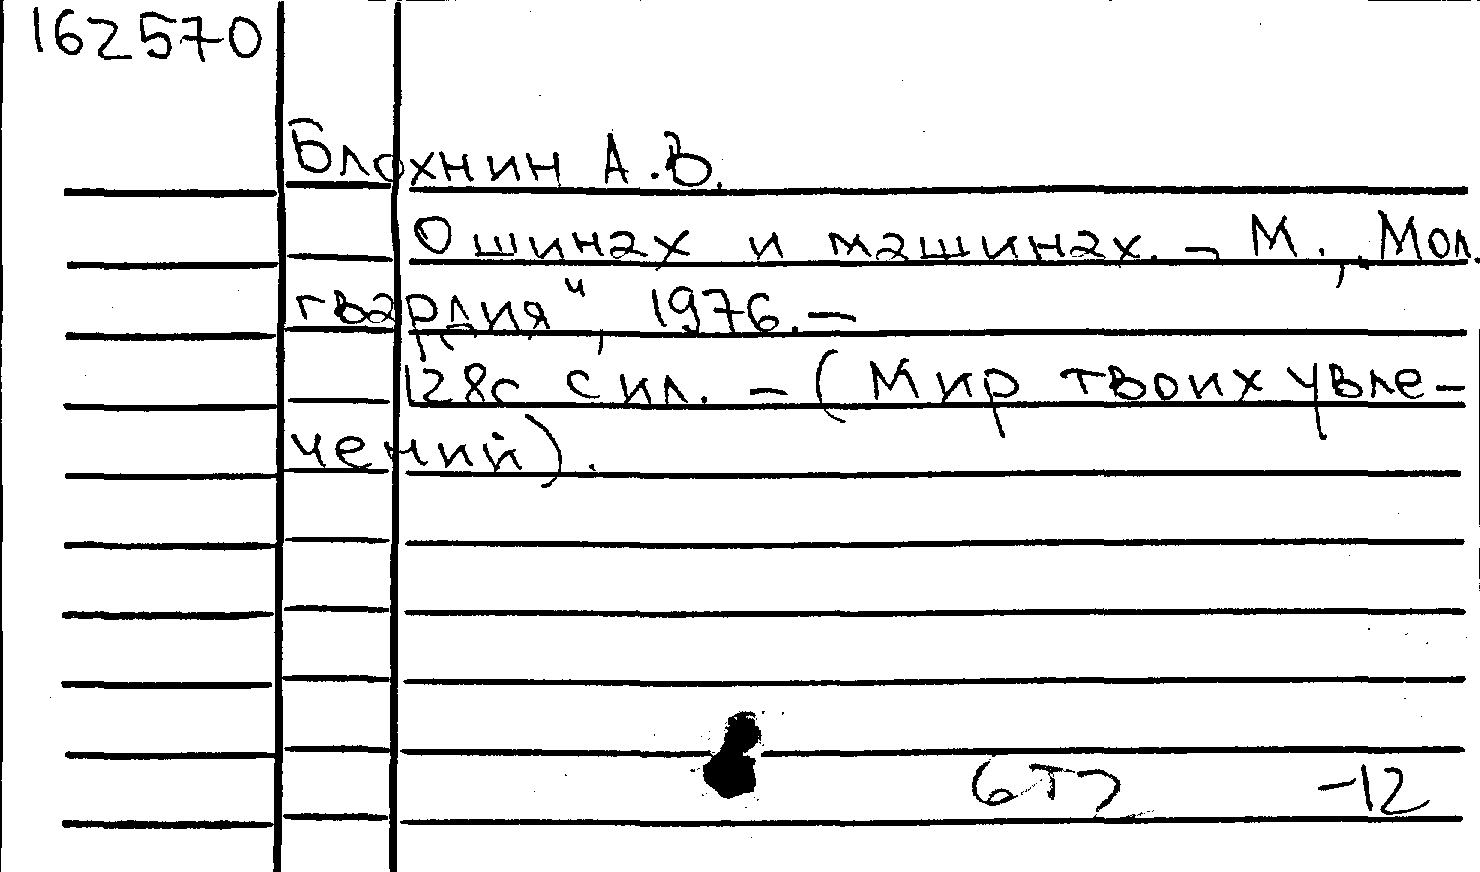 162570
Блохнин А.В.
О шинах и машинах. – М., „Мол.
гвардия“, 1976. –
128с с ил. – (Мир твоих увле–
чений).
6Т2 –12